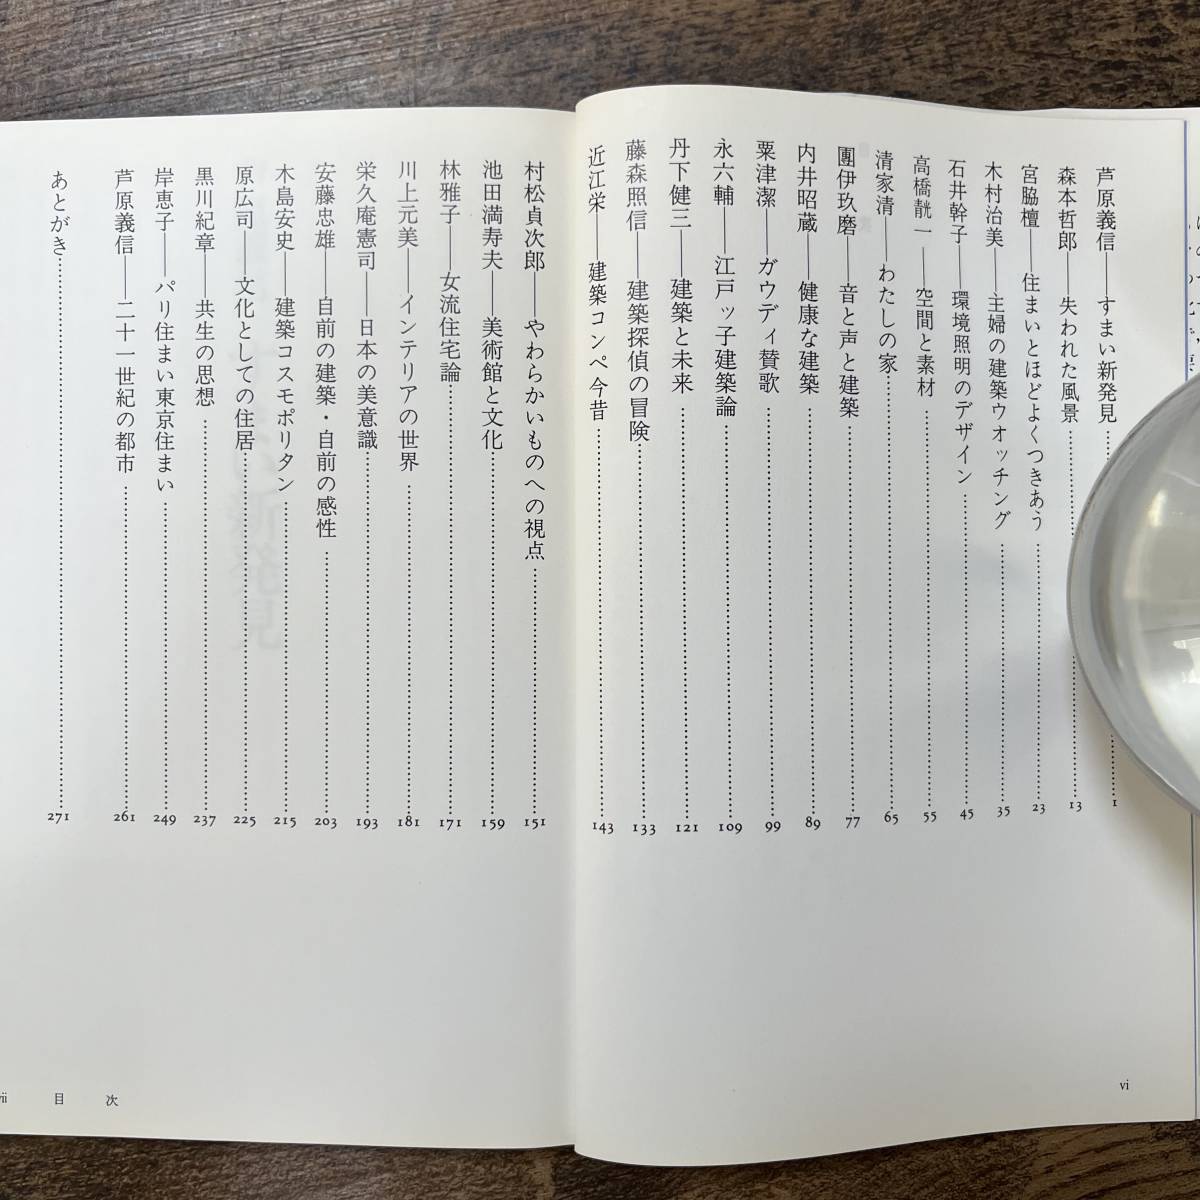 芦原義信——すまい新発見……1
森本哲郎——失われた風景……13
宮脇檀——住まいとほどよくつきあう……23
木村治美——主婦の建築ウオッチング……35
石井幹子——環境照明のデザイン……45
高橋靗一——空間と素材……55
清家清——わたしの家……65
團伊玖磨——音と声と建築……77
内井昭蔵——健康な建築……89
粟津潔——ガウディ賛歌……99
永六輔——江戸ッ子建築論……109
丹下健三——建築と未来……121
藤森照信——建築探偵の冒険……133
近江栄——建築コンペ今昔……143
vi
村松貞次郎——やわらかいものへの視点……151
池田満寿夫——美術館と文化……159
林雅子——女流住宅論……171
川上元美——インテリアの世界……181
栄久庵憲司——日本の美意識……193
安藤忠雄——自前の建築・自前の感性……203
木島安史——建築コスモポリタン……215
原広司——文化としての住居……225
黒川紀章——共生の思想……237
岸恵子——パリ住まい東京住まい……249
芦原義信——二十一世紀の都市……261
あとがき……271
目次